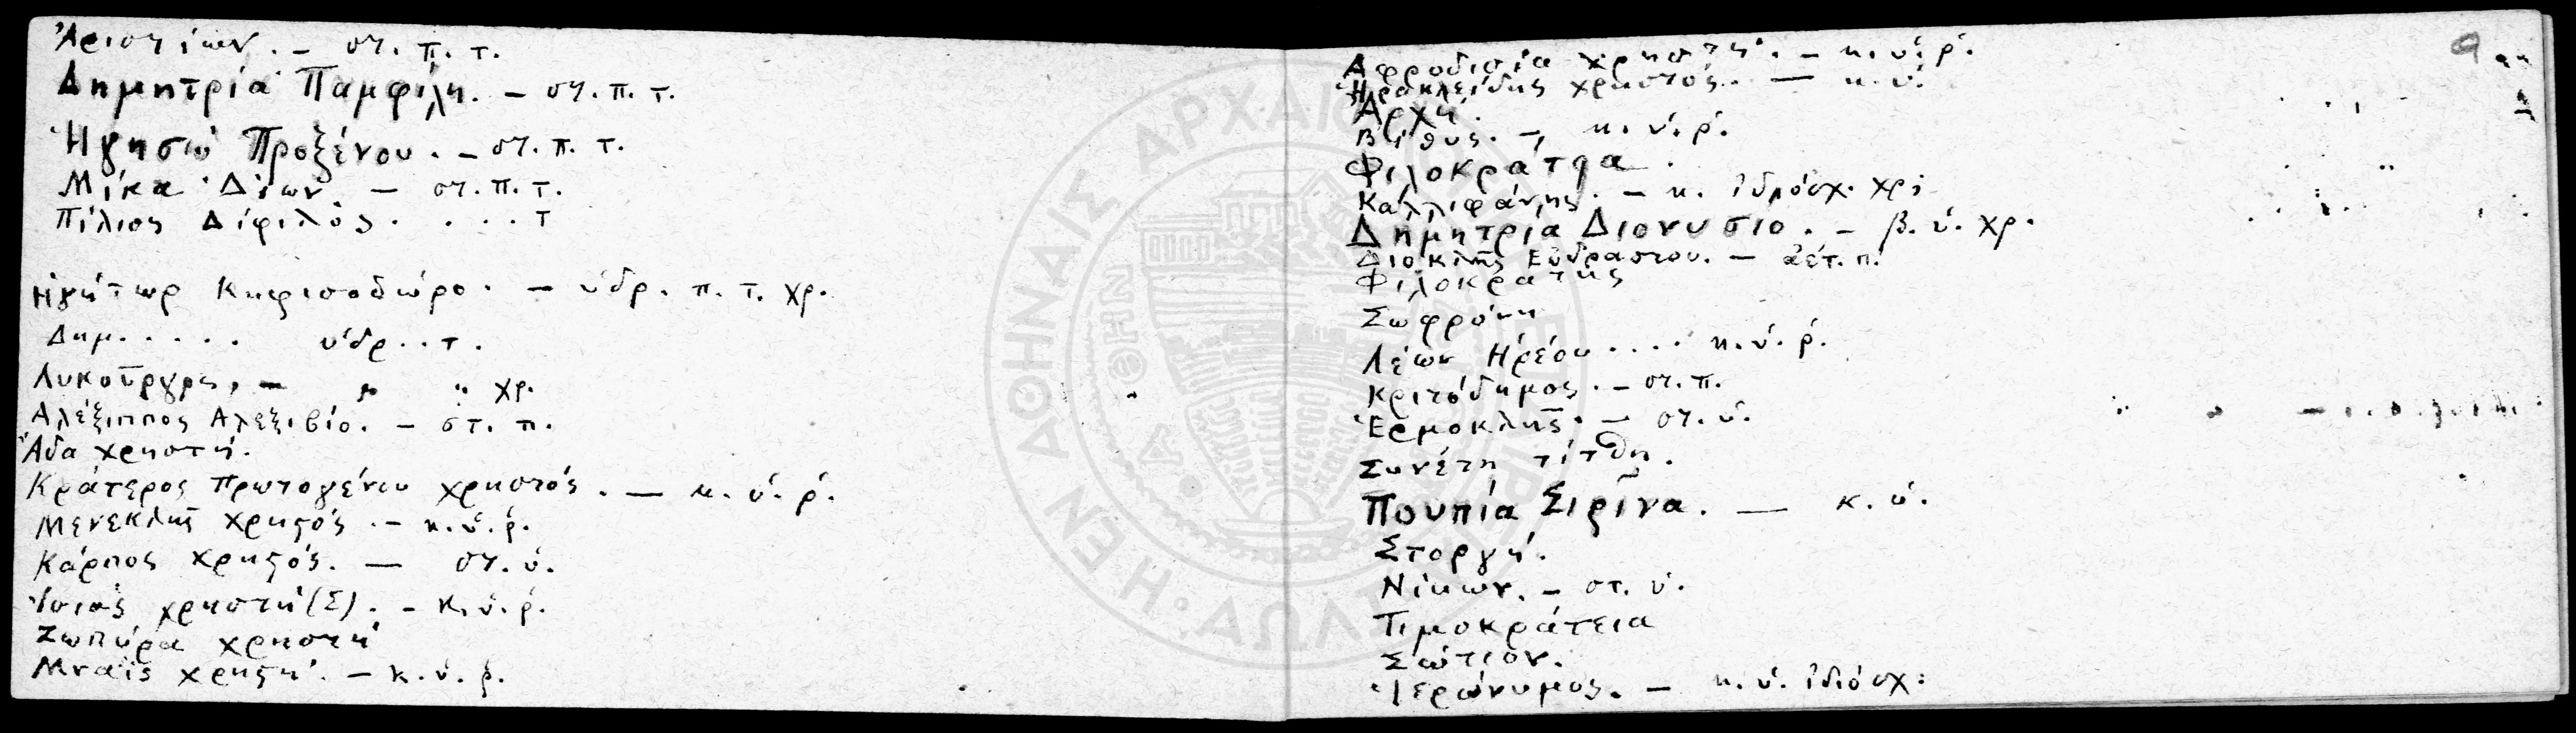 Ἀριστίων. – στ. π. τ.
Δημητρία Παμφίλη. – στ. π. τ.
Ἡγησώ Προξένου. – στ. π. τ.
Μίκα Δίων – στ. π. τ.
Πίλιος Δίφιλος . . . . τ
Ἡγήτωρ Κηφισοδώρο. – ὑδρ. π. τ. χρ.
Δημ. . . . . ὑδρ. . τ.
Λυκοῦργος, – „ „ χρ.
Αλέξιππος Αλεξιβίο. – στ. π.
Ἄδα χρηστή.
Κράτερος Πρωτογένου χρηστός. — κ. ὑ. ρ.
Μενεκλῆς χρηςός. – κ. ὑ. ρ.
Κάρπος χρηςός. — στ. ὑ.
Ἰσιάς χρηστή (Σ). – κ. ὑ. ρ.
Ζωπύρα χρηστή
Μναΐς χρηςή. – κ. ὑ. ρ.
9
Αφροδισία χρηστή. – κ. ύ. ρ.
Ἡρακλείδης χρηστός. — κ. ύ.
Ἀρχή.
Βίθυς. –, κ. ύ. ρ.
Φιλοκράτηα
Καλλιφάνης. – κ. ἰδιόσχ. χρ:
Δημητρία Διονυσίο. – β. ύ. χρ.
Διοκλῆς Εὐδράστου. – ἀέτ. π.
Φιλοκράτης
Σωφρόνη
Λέων Ηρέου . . . . κ. ύ. ρ.
Κριτόδημος. – στ. π.
Ἑρμοκλῆς. – στ. ύ.
Συνέτη τίτθη.
Πουπία Σιρῖνα. — κ. ύ.
Στοργή.
Νίκων. – στ. ύ.
Τιμοκράτεια
Σώτιον.
Ἱερώνυμος. – κ. ύ. ἰδιόσχ:
Η ΕΝ ΑΘΗΝΑΙΣ ΑΡΧΑΙΟΛΟΓΙΚΗ ΕΤΑΙΡΕΙΑ